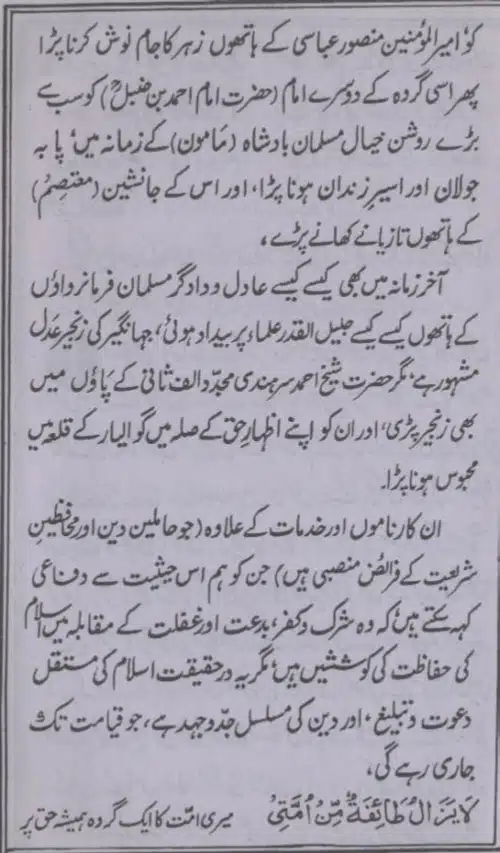 کو امیر المؤمنین منصور عباسی کے ہاتھوں زہر کا جام نوش کرنا پڑا
پھر اسی گروہ کے دوسرے امام (حضرت امام احمد بن حنبلؒ) کو سب سے
بڑے روشن خیال مسلمان بادشاہ (مامون) کے زمانہ میں، پا بہ
جولان اور اسیرِ زندان ہونا پڑا، اور اس کے جانشین (معتصم)
کے ہاتھوں تازیانے کھانے پڑے،
آخر زمانہ میں بھی کیسے کیسے عادل و دادگر مسلمان فرمانرواؤں
کے ہاتھوں کیسے کیسے جلیل القدر علماء پر بیداد ہوئی، جہانگیر کی زنجیر عدل
مشہور ہے، مگر حضرت شیخ احمد سرہندی مجدّد الف ثانی کے پاؤں میں
بھی زنجیر پڑی، اور ان کو اپنے اظہارِ حق کے صلہ میں گوالیار کے قلعہ میں
محبوس ہونا پڑا۔
ان کارناموں اور خدمات کے علاوہ (جو حاملین دین اور محافظین
شریعت کے فرائض منصبی ہیں) جن کو ہم اس حیثیت سے دفاعی
کہہ سکتے ہیں، کہ وہ شرک و کفر، بدعت اور غفلت کے مقابلہ میں اسلام
کی حفاظت کی کوششیں ہیں، مگر یہ در حقیقت اسلام کی مستقل
دعوت و تبلیغ، اور دین کی مسلسل جدّ و جہد ہے، جو قیامت تک
جاری رہے گی،
لَا یَزَالُ طَائِفَةٌ مِّنْ اُمَّتِیْ میری امّت کا ایک گروہ ہمیشہ حق پر